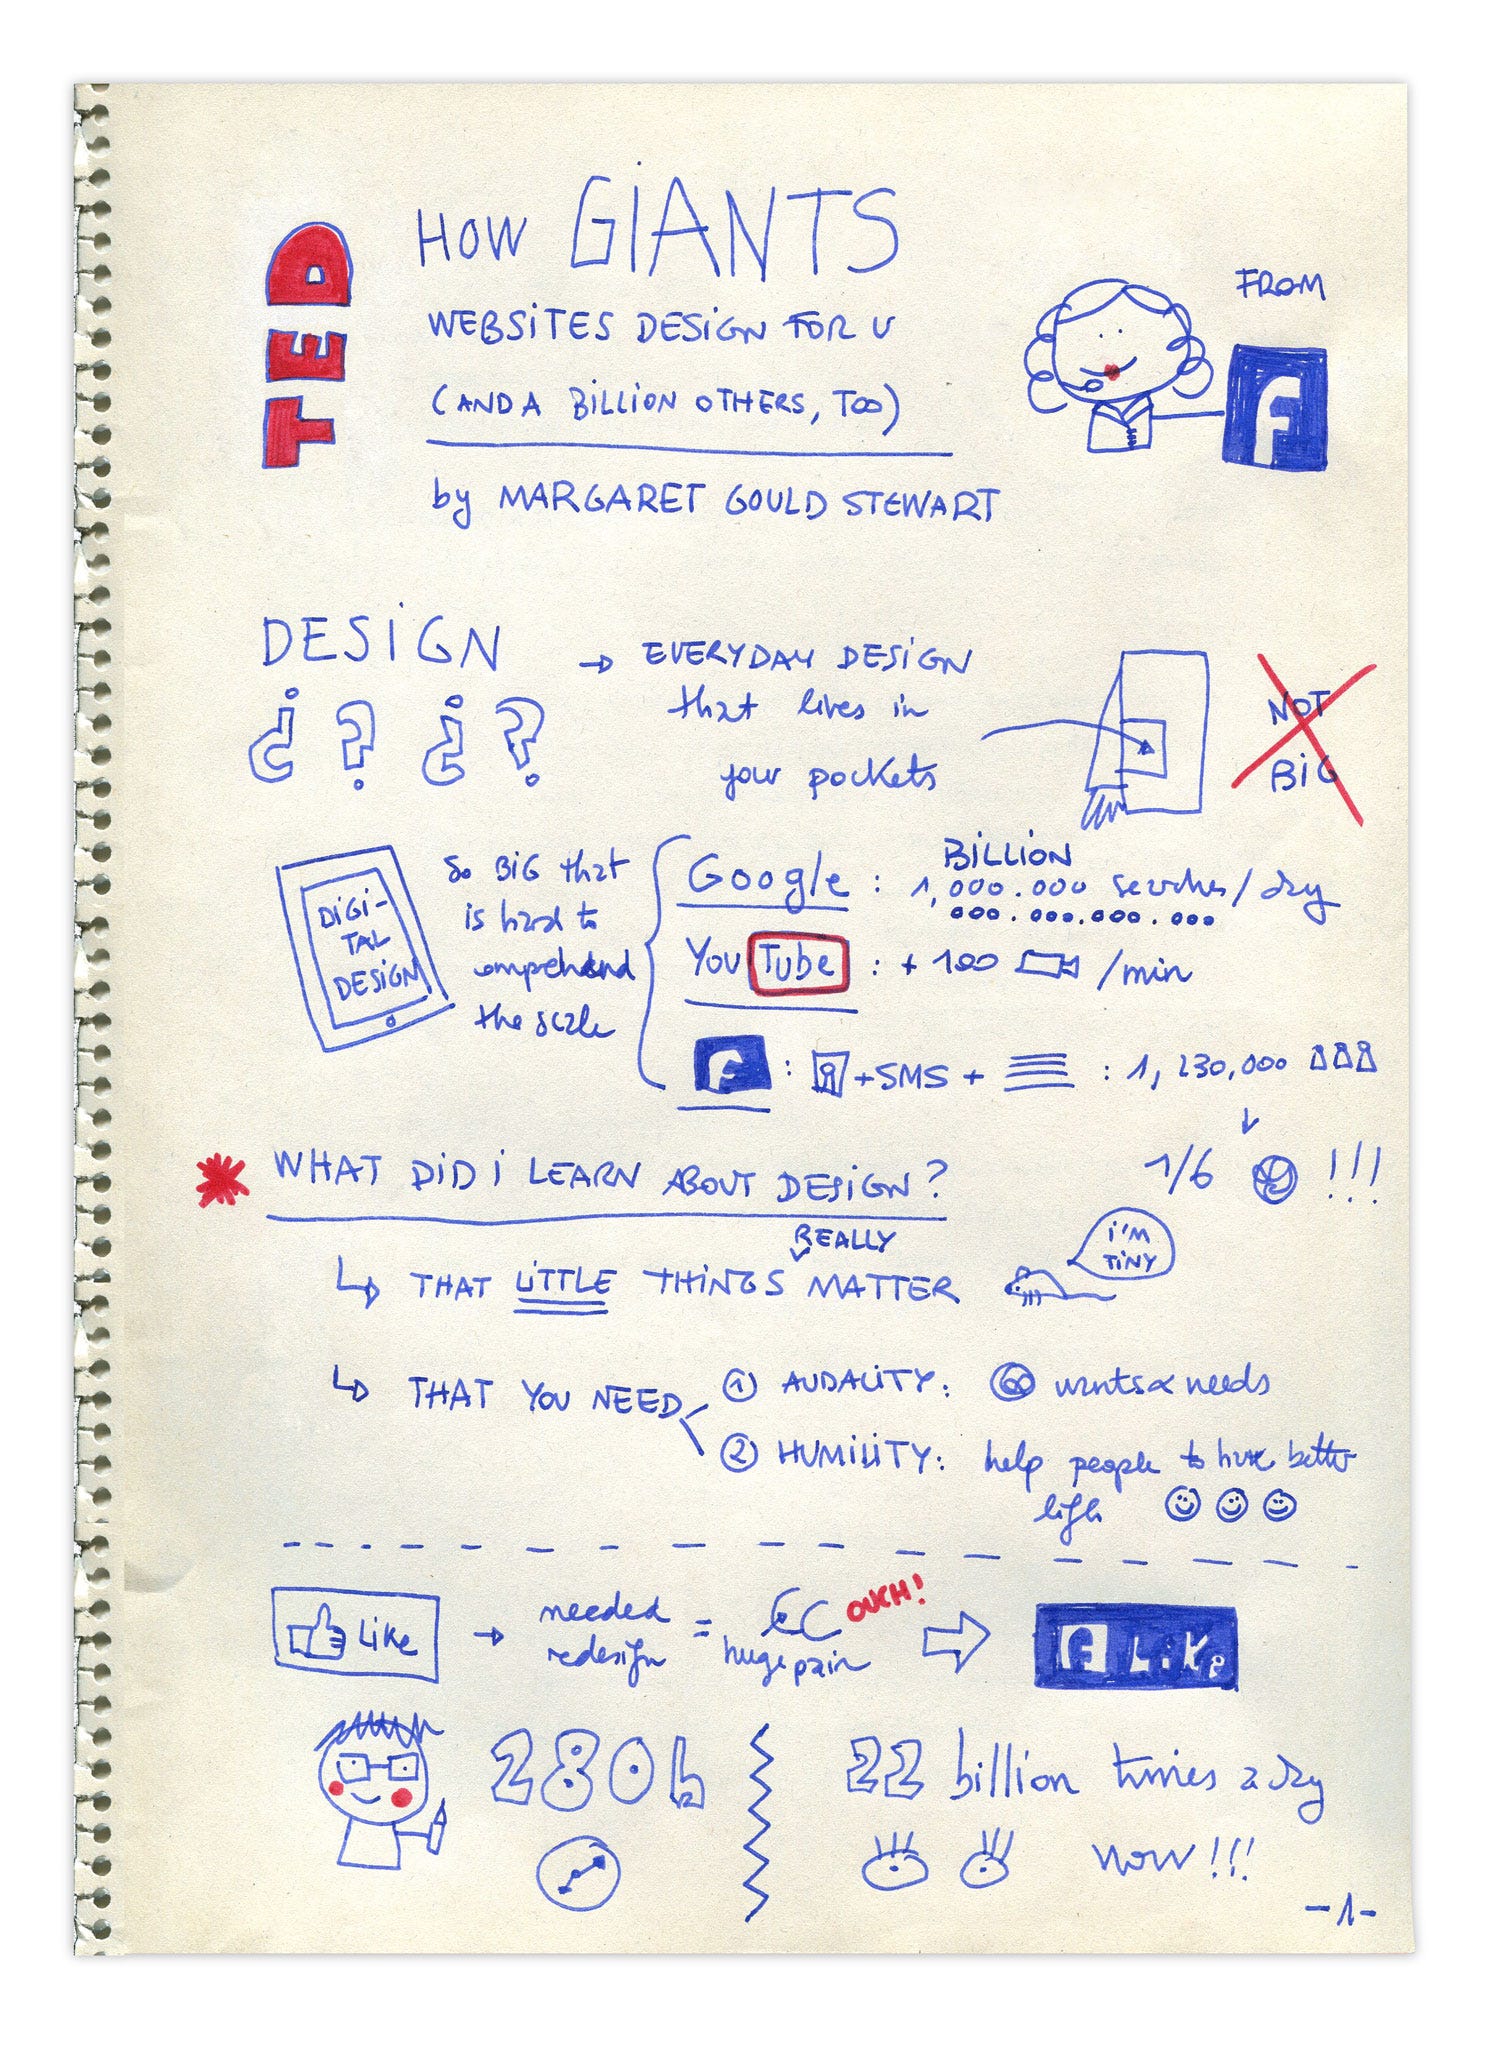 TED
HOW GIANTS
WEBSITES DESIGN FOR U
(AND A BILLION OTHERS, TOO)
by MARGARET GOULD STEWART
FROM
f
DESIGN
¿ ? ¿ ?
→ EVERYDAY DESIGN
that lives in
your pockets
NOT
BIG
DIGI-
TAL
DESIGN
So BIG that
is hard to
comprehend
the scale
BILLION
Google : 1,000.000 searches/day
000.000.000.000
YouTube : +100 /min
f : +SMS + : 1,230,000
1/6 !!!
* WHAT DID I LEARN ABOUT DESIGN?
REALLY
↳ THAT LITTLE THINGS MATTER
I'M
TINY
↳ THAT YOU NEED
① AUDALITY: wants & needs
② HUMILITY: help people to have better
lifes
Like → needed
redesign
= OUCH!
huge pain
f Like
280h
22 billion times a day
now!!!
-1-